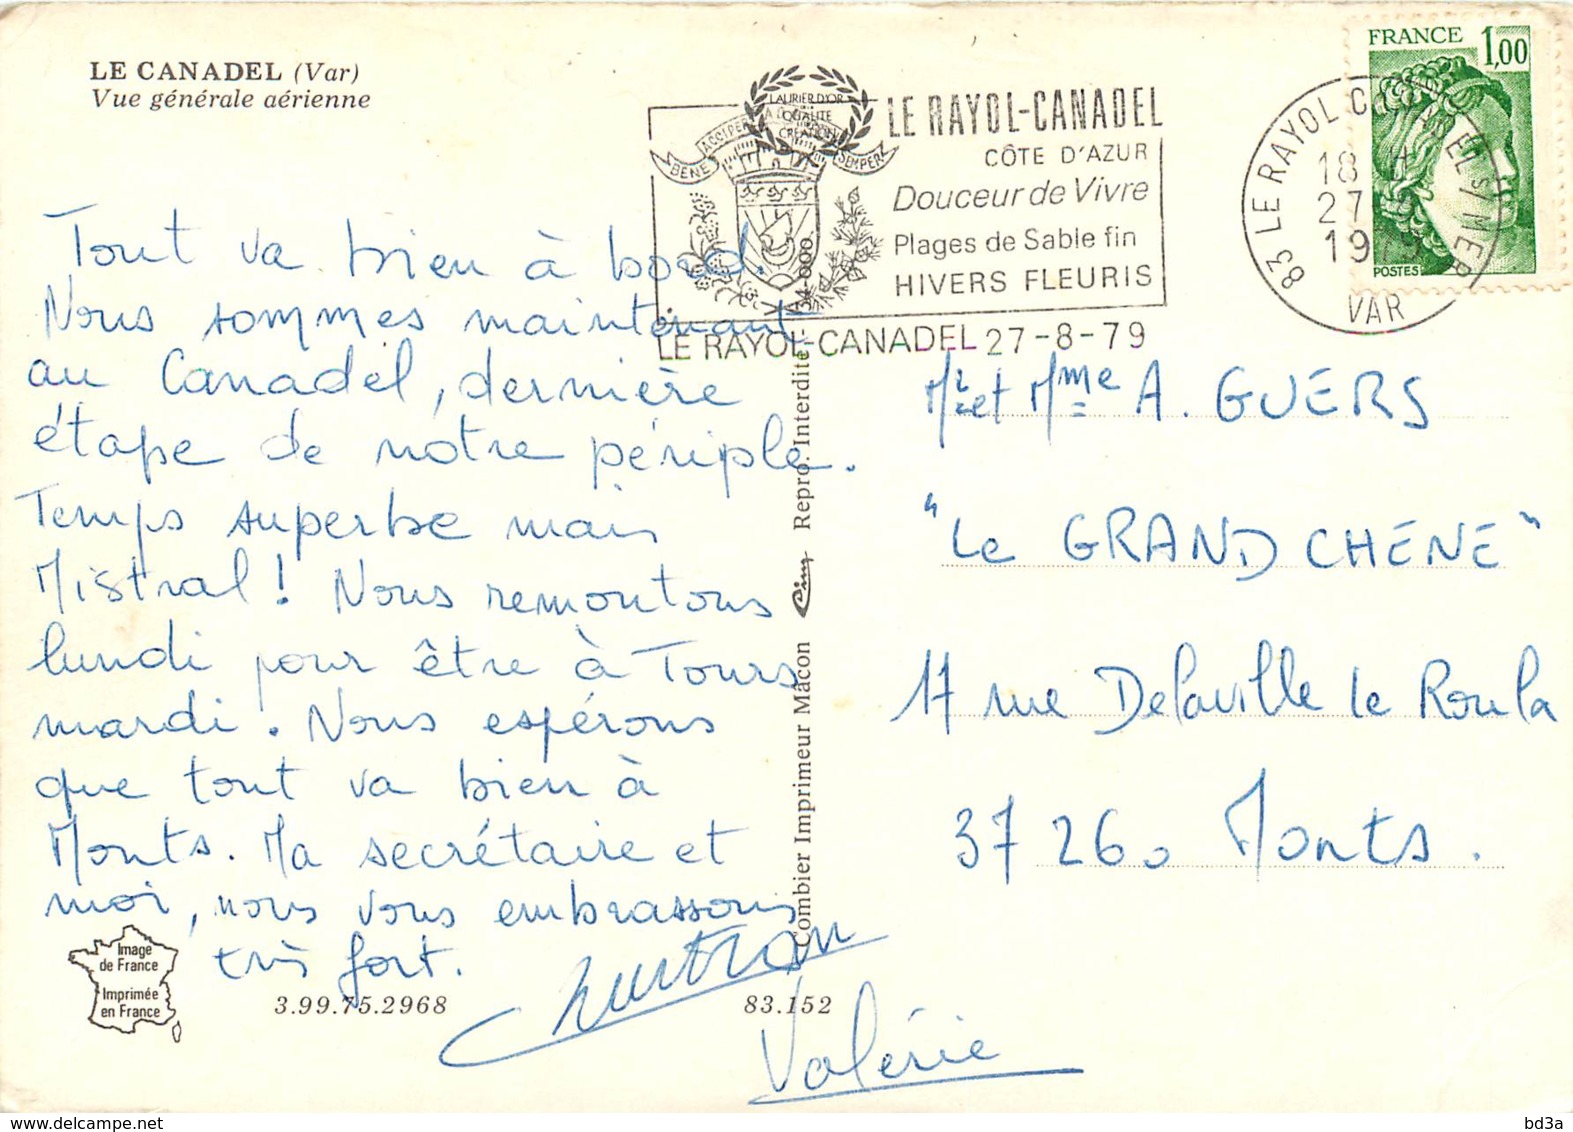 LE CANADEL (Var)
Vue générale aérienne
Tout va bien à bord.
Nous sommes maintenant
au Canadel, dernière
étape de notre périple.
Temps superbe mais
Mistral ! Nous remontons
lundi pour être à Tours
mardi. Nous espérons
que tout va bien à
Monts. Ma secrétaire et
moi, nous vous embrassons
très fort.
Valérie
Image
de France
Imprimée
en France
3.99.75.2968
83.152
Combier Imprimeur Mâcon
Cim
Repro. Interdite
LAURIER D'OR
QUALITÉ
CRÉATION
BENE ACCIPERE SEMPER
LE RAYOL-CANADEL
CÔTE D'AZUR
Douceur de Vivre
Plages de Sable fin
HIVERS FLEURIS
LE RAYOL-CANADEL 27-8-79
83 LE RAYOL CANADEL S/ MER
18 H
27
1979
VAR
FRANCE 1,00
POSTES
Mr et Mme A. GUERS
"Le GRAND CHENE"
17 rue Delaville le Roulx
37260 Monts.
delcampe.net
bd3a